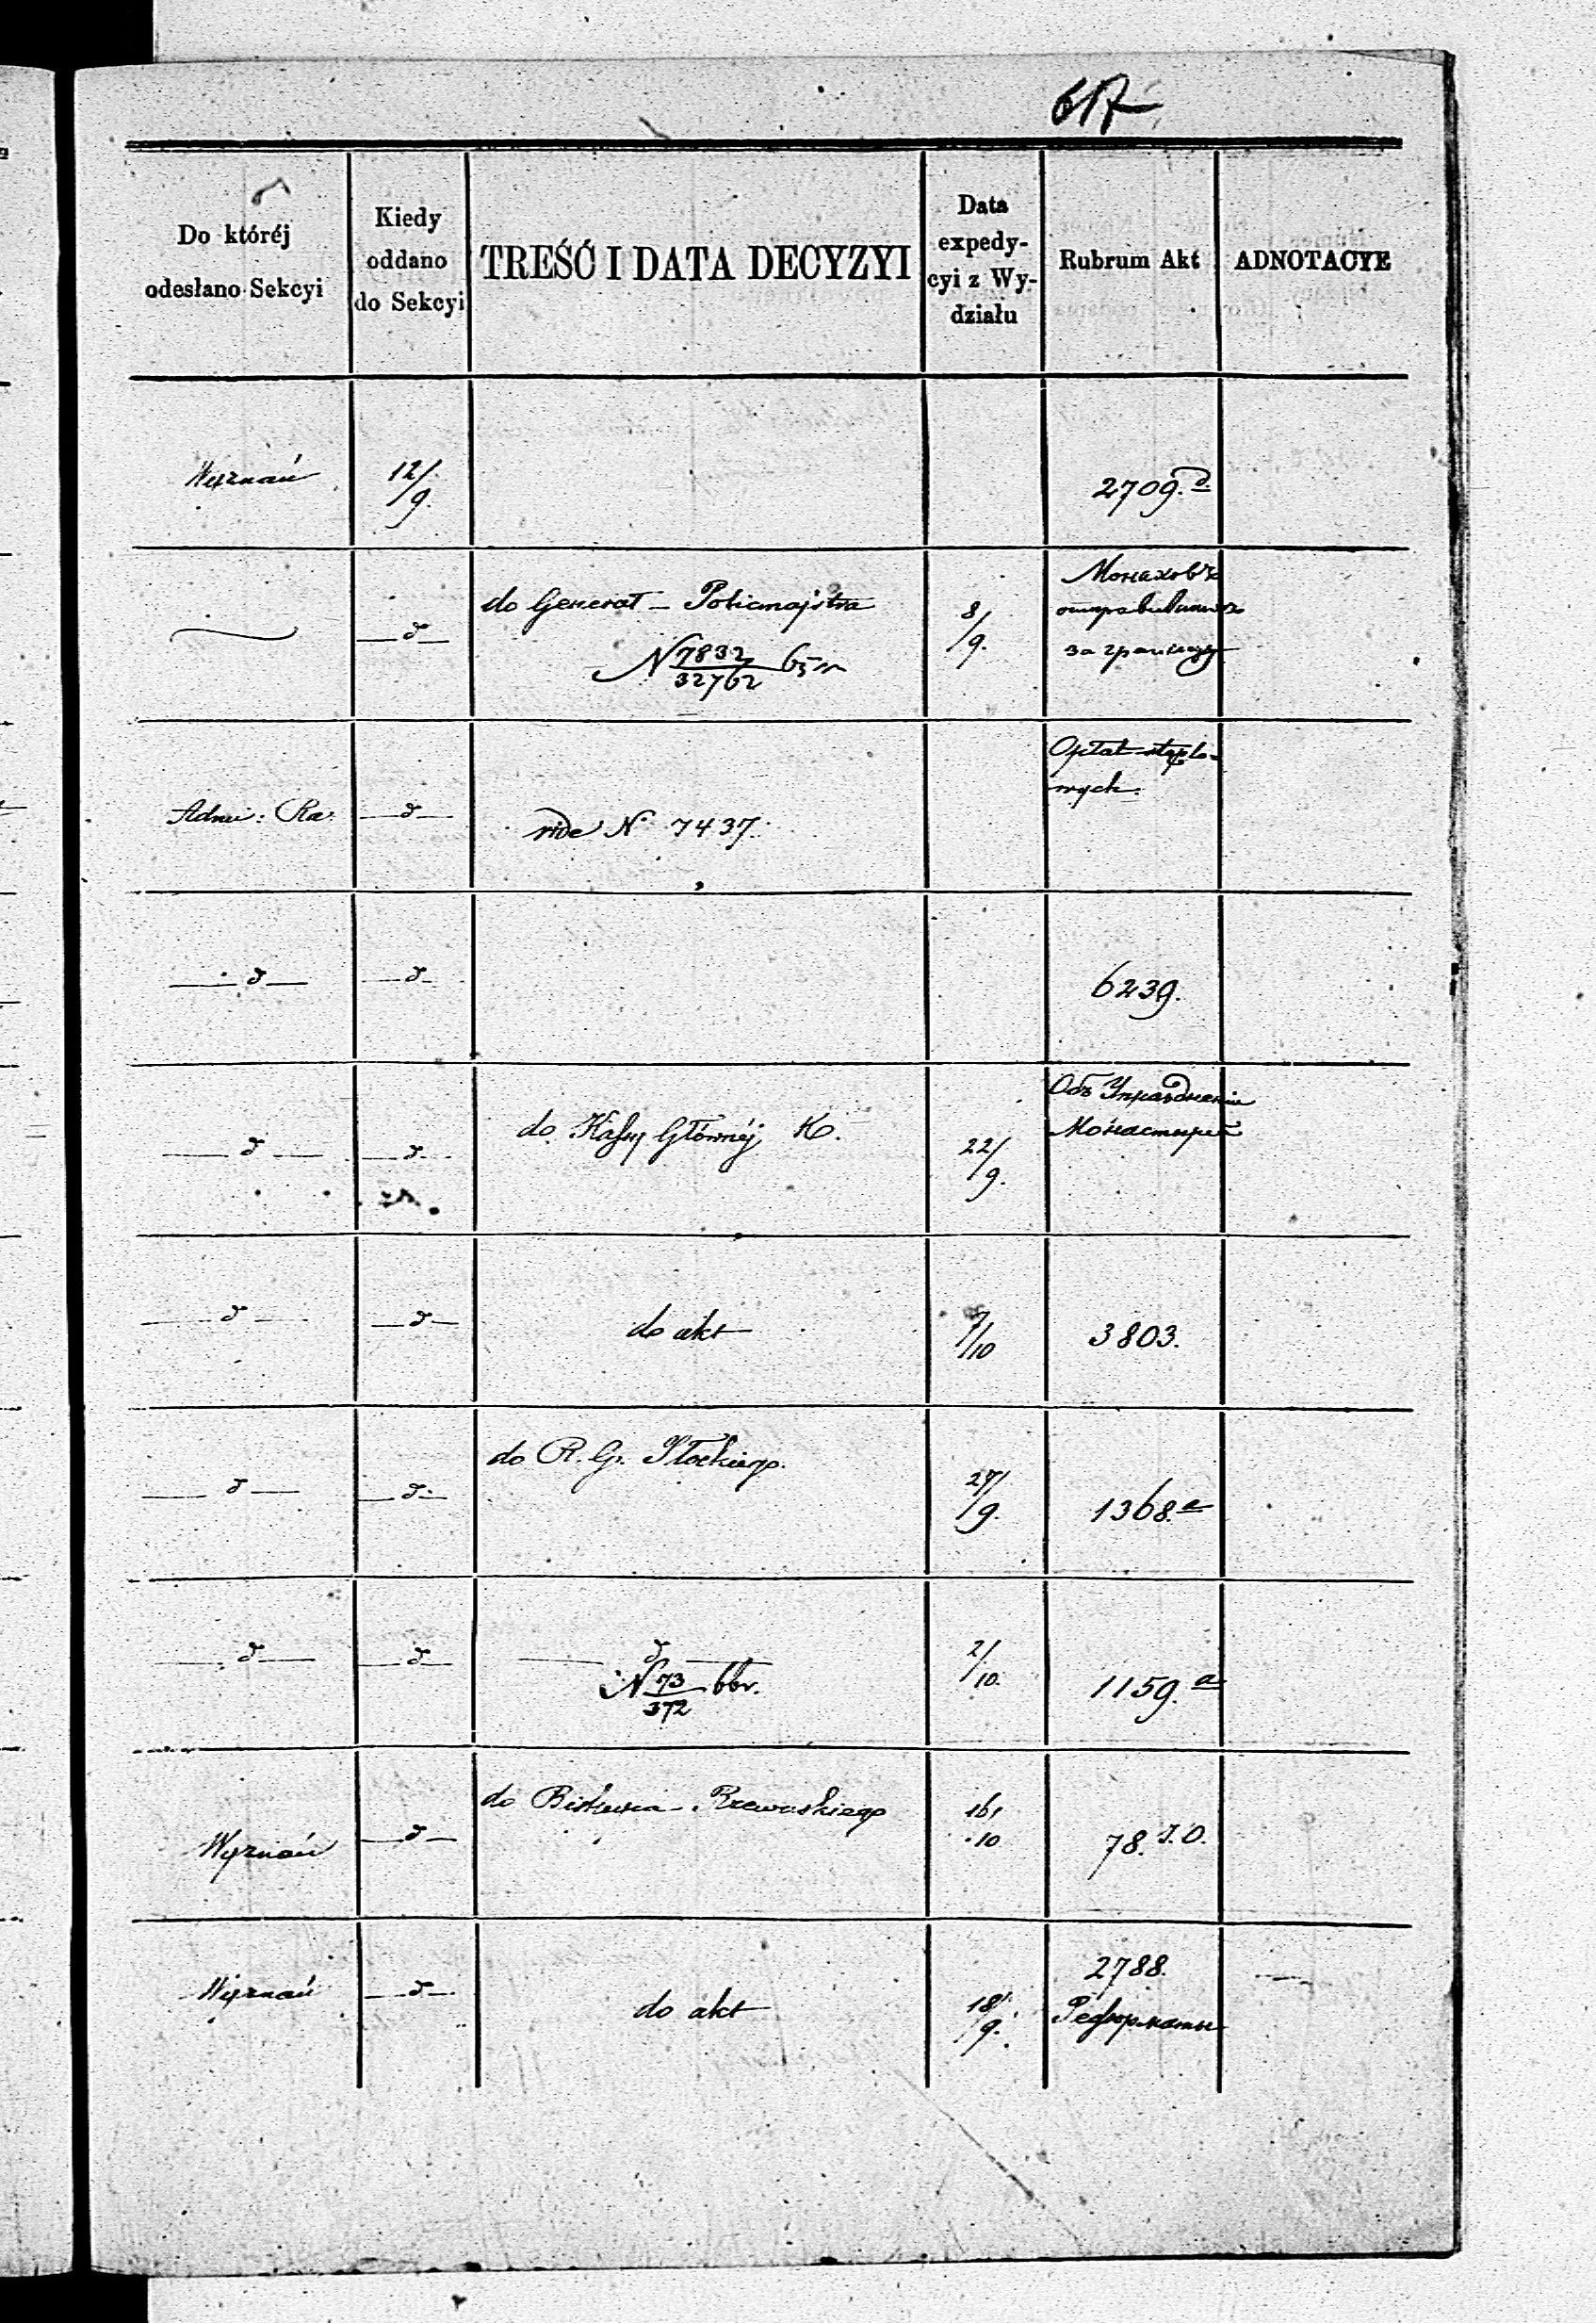 617
Do któréj
odesłano Sekcyi
Kiedy
oddano
do Sekcyi
TREŚĆ I DATA DECYZYI
Data
expedy-
cyi z Wy-
działu
Rubrum Akt
ADNOTACYE
Wyznań
12/9.
2709.d.
— d —
do Generał - Policmajstra
N 7832/32762
8/9.
Монаховъ
отправленныхъ
за границу
Adm: Ra:
— d —
vide N 7437.
Opłat stęplo-
wych.
— d —
— d —
6239.
— d —
— d —
do Kassy Głównéj K.
22/9.
Объ Упраздненіи
Монастырей
— d —
— d —
do akt
7/10
3803.
— d —
— d —
do R. G. Płockiego.
27/9.
1368.a
— d —
— d —
— d —
N 73/372 66r.
2/10.
1159.a
Wyznań
— d —
do Biskupa Rzewuskiego
16/10
78.
Wyznań
— d —
do akt
18/9.
2788.
Реформаты